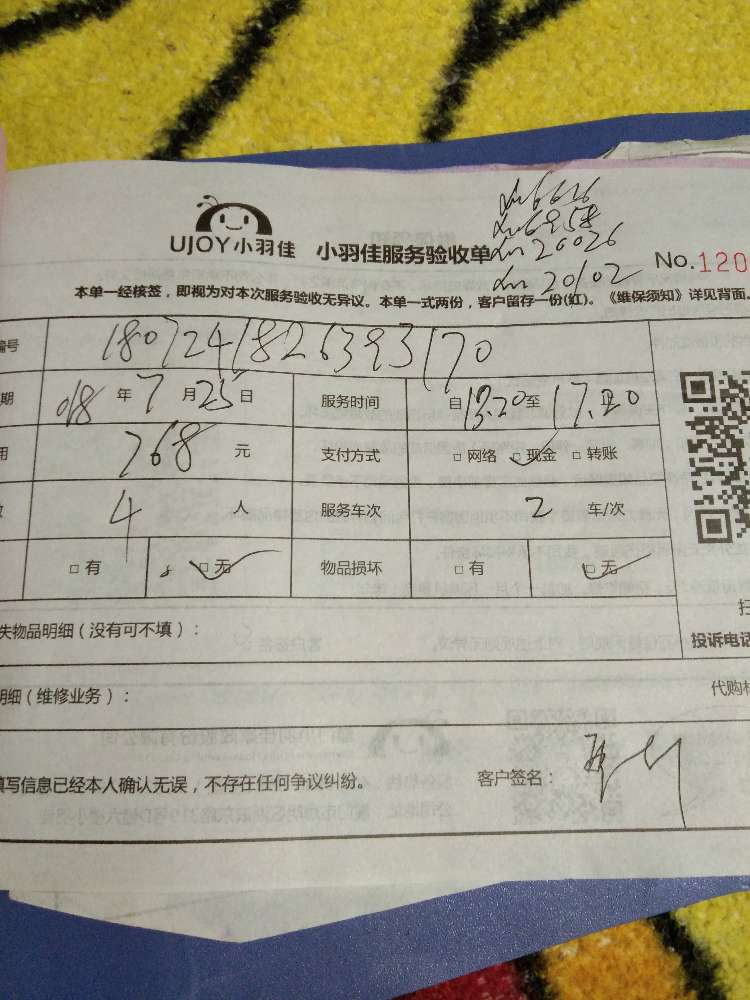 UJOY小羽佳 小羽佳服务验收单
20026
20102
No.120
本单一经核签，即视为对本次服务验收无异议。本单一式两份，客户留存一份(红)。《维保须知》详见背面。
编号 180724182639317​0
期 018 年 7 月 25 日 服务时间 自 13.20 至 17.20
用 768 元 支付方式 □ 网络 □ 现金 □ 转账
数 4 人 服务车次 2 车/次
□ 有 □ 无 物品损坏 □ 有 □ 无
失物品明细（没有可不填）：
投诉电话
明细（维修业务）： 代购材
填写信息已经本人确认无误，不存在任何争议纠纷。 客户签名：